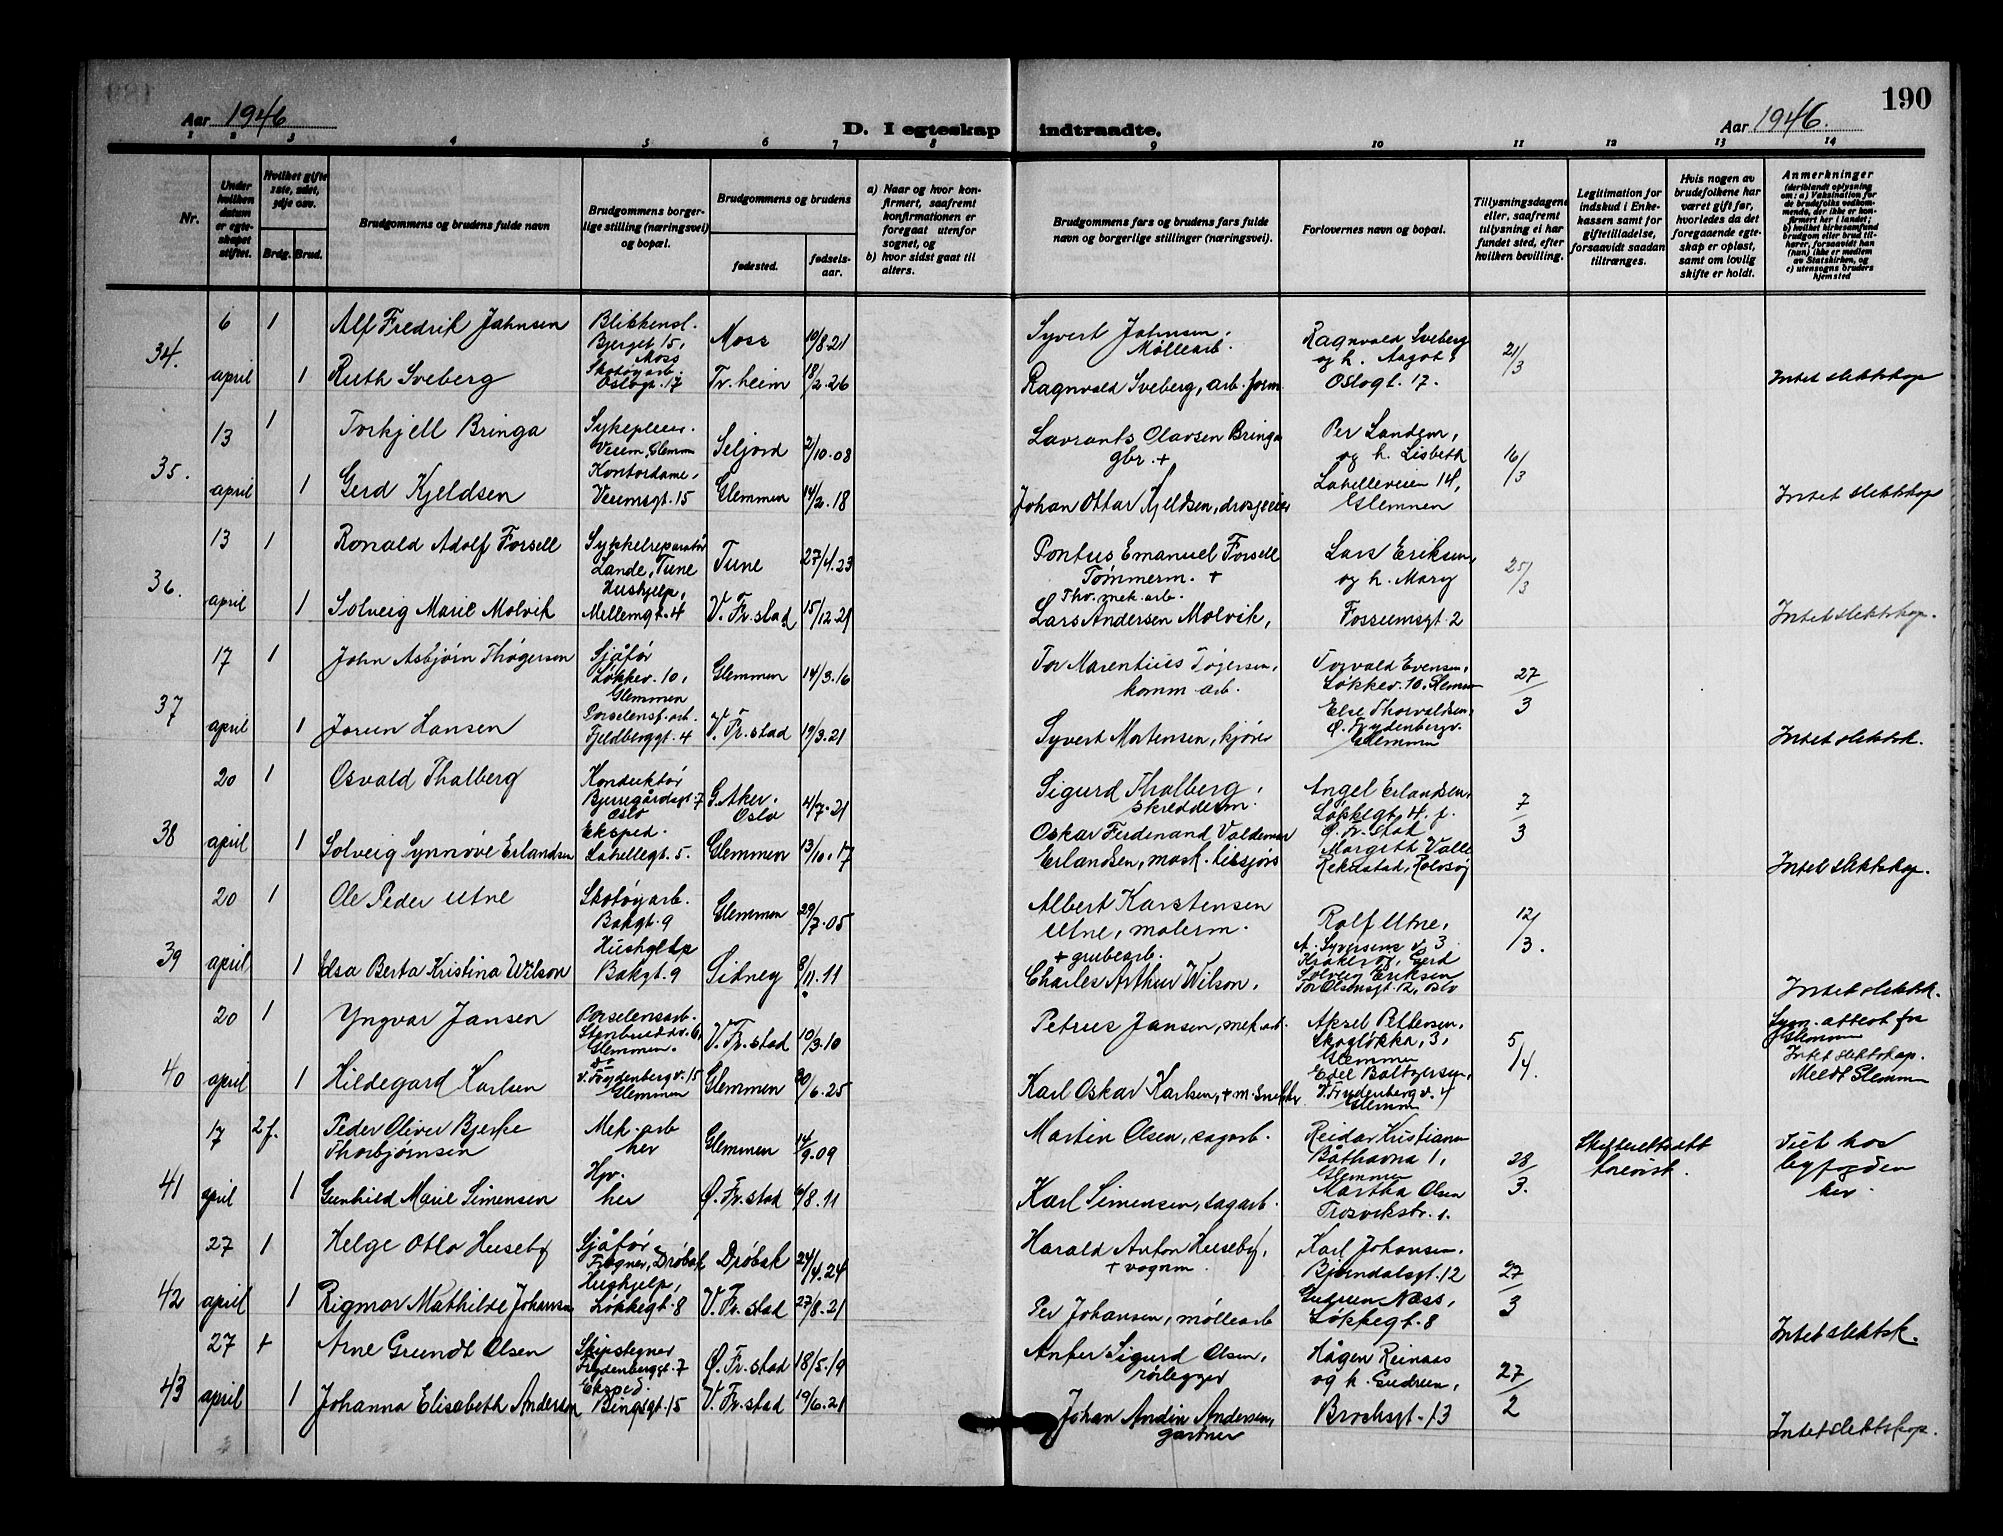 190
Aar 1946
D. I egteskap indtraadte.
Aar 1946.
1 2 3 4 5 6 7 8 9 10 11 12 13 14
Nr.
Under hvilken datum er egteskapet stiftet.
Hvilket gifte 1ste, 2det, 3dje osv.
Brdg. Brud.
Brudgommens og brudens fulde navn
Brudgommens borgerlige stilling (næringsvei) og bopæl.
Brudgommens og brudens
fødested.
fødselsaar.
a) Naar og hvor konfirmert, saafremt konfirmationen er foregaat utenfor sognet, og
b) hvor sidst gaat til alters.
Brudgommens fars og brudens fars fulde navn og borgerlige stillinger (næringsvei).
Forlovernes navn og bopæl.
Tillysningsdagene eller, saafremt tillysning ei har fundet sted, efter hvilken bevilling.
Legitimation for indskud i Enkekassen samt for giftetilladelse, forsaavidt saadan tiltrænges.
Hvis nogen av brudefolkene har været gift før, hvorledes da det foregaaende egteskap er opløst, samt om lovlig skifte er holdt.
Anmerkninger
(deriblandt oplysning om: a) Vaksination for de brudefolks vedkommende, der ikke er konfirmert her i landet; b) hvilket kirkesamfund brudgom eller brud tilhører, forsaavidt han (hun) ikke er medlem av Statskirken, og c) utensogns bruders hjemsted
34. 6 april
1 Alf Fredrik Jahnsen Blikkensl. Bjerget 15, Moss Moss 19/8.21 Syvert Jahnsen, Møllearb. Ragnvald Sveberg og h. Aagot, Oslogt. 17. 21/3
1 Ruth Sveberg Skotøyarb. Oslogt. 17 Tr.heim 18/2.26 Ragnvald Sveberg, arb. form. Intet slektskap
35. 13 april
1 Torkjell Bringa Sykepleier. Veum, Glemmen Seljord 2/10.08 Lavrants Olavsen Bringa gbr. + Per Sandem, og h. Lisbeth Labelleveien 14, Glemmen 16/3
1 Gerd Kjeldsen Kontordame, Veumsgt. 15 Glemmen 14/2.18 Johan Ottar Kjeldsen, drosjeeier Intet slektskap
36. 13 april
1 Ronald Adolf Forsell Sykkelreparatør Lande, Tune Tune 27/4.23 Pontus Emanuel Forsell Tømmerm. + Lars Eriksen, og h. Mary Fossumsgt. 2 25/3
1 Solveig Marie Molvik Hushjelp, Mellemgt. 4 V. Fr.stad 15/12.21 Lars Andersen Molvik, Intet slektskap.
37 17 april
1 John Asbjørn Thøgersen Sjåfør Løkkev. 10, Glemmen Glemmen 14/3.16 Tor Marentius Tøgersen, komm. arb. Torvald Evensen, Løkkev. 10, Glemmen Else Thorvaldsen, Ø. Frydenbergv. Glemmen 27/3
1 Jorun Hansen Porselensf. arb. Fjeldberggt. 4 V. Fr.stad 19/3.21 Syvert Mortensen, kjører Intet slektsk.
38 20 april
1 Osvald Thalberg Konduktør Bjerregårdsgt. 7 Oslo G. Aker. Oslo 4/7.21 Sigurd Thalberg, skredderm. Angel Erlandsen, Løkkegt. 4. Ø. Fr.stad Margith Valle Rekustad, Rolvsøy 7/3
1 Solveig Synnøve Erlandsen Eksped. Labellegt. 5. Glemmen 13/10.17 Oskar Ferdinand Valdemar Erlandsen, mask. Intet slektskap.
39 20 april
1 Ole Peder Utne Skotøyarb. Bakgt. 9 Glemmen 29/7.05 Albert Karstensen Utne, malerm. Rolf Utne, A. Syversens v. 3 Kråkerøy, Gerd Solveig Eriksen Tor Olsensgt. 12, Oslo 12/3.
1 Edsa Berta Kristina Wilson Hushjelp Bakgt. 9 Sidney 8/11.11 + grubearb. Charles Arthur Wilson, Intet slektsk.
40 20 april
1 Yngvar Jansen Porselensarb. Stenbruddv. 6, Glemmen. V. Fr.stad 10/3.10 Petrus Jansen, mek. arb. Aksel Pettersen, Skogløkka, 3, Glemmen Edel Baltzersen, V. Frydenberg v. 4 Glemm 5/4. attest fra Glemmen
1 Hildegard Karlsen do V. Frydenberg v. 15 Glemmen Glemmen 20/6.25 Karl Oskar Karlsen, + m. Snekker Intet slektskap. Meldt Glemmen
41 17 april
2 f. Peder Oliver Bjerke Thorbjørnsen Mek. arb her Glemmen 14/9.09 Martin Olsen, sagarb. Reidar Kristiansen Båthavna 1, Glemmen Martha Olsen Trosvikstr. 1. 28/3. Skifterettsatt forevist. Viet hos byfogden her.
1 Gunhild Marie Simensen Hpv. her Ø. Fr.stad 6/8.11 Karl Simensen, sagarb.
42 27 april
1 Helge Otto Huseby Sjåfør Fragner, Drøbak Drøbak 24/4.24 Harald Anton Huseby, + vognm. Karl Johansen. Bjørndalsgt. 12 Gudrun Næss, Løkkegt. 8 27/3
1 Rigmor Mathilde Johansen Hushjelp, Løkkegt. 8 V. Fr.stad 27/8.21 Per Johansen, møllearb Intet slektsk.
43 27 april
1 Arne Grundt Olsen Skipstegner Frydenbergt. 7 Ø. Fr.stad 18/5.19 Anker Sigurd Olsen, rørlegger Hågen Reinaas og h. Gudrun, Brochsgt. 13 27/2
1 Johanna Elisabeth Andersen Eksped. Bingsgt. 15 V. Fr.stad 19/6.21 Johan Andin Andersen, gartner Intet slektskap.